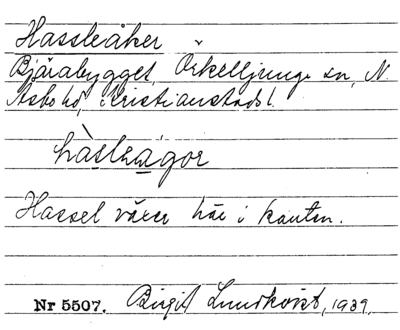 Hassleåker
Bjärabygget, Örkelljunga sn, N
Åsbo hd, Kristianstads l.
hàslɐágor
Hassel växer här i kanten.
Nr 5507. Birgit Lundkvist, 1939.